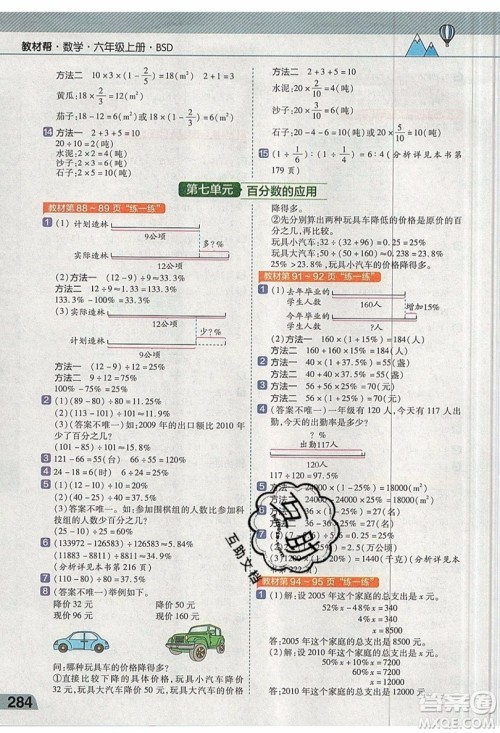 教材帮·数学·六年级上册·BSD
方法二 10×3×(1-2/5)=18(m²)
黄瓜:18×2/3=12(m²)
茄子:18-12=6(m²)
14 方法一 2+3+5=10
20÷10=2(吨)
水泥:2×2=4(吨)
沙子:2×3=6(吨)
石子:2×5=10(吨)
方法二 2+3+5=10
水泥:20×2/10=4(吨)
沙子:20×3/10=6(吨)
石子:20×5/10=10(吨)
15 (1+1/6):(1-1/6)=7:5(分析详见本书第
179页)
第七单元 百分数的应用
教材第88~89页“练一练”
1 (1)计划造林
9公顷
多?%
实际造林
12公顷
(2)方法一 12-9=3(公顷)
3÷9≈33.3%
方法二 12÷9≈133.3%
133.3%-100%=33.3%
(3)计划造林
12公顷
少?%
实际造林
9公顷
方法一 12-9=3(公顷)
3÷12=25%
方法二 9÷12=75%
100%-75%=25%
2 (1)(89-80)÷80=11.25%
(2)(100-85)÷85≈17.6%
(3)(答案不唯一)如:2009年的出口额比2010年
少百分之几?
(101-85)÷101≈15.8%
3 121-66=55(台) 55÷66≈83.3%
4 24-18=6(时) 6÷24=25%
5 (答案不唯一)如:参加围棋组的人数比参加科
技组的人数少百分之几?
(25-10)÷25=60%
6 (133972-126583)÷126583≈5.8%
(68688-51512)÷51512≈33.3%
(分析详见本书第156页)
7 (110-80)÷80=37.5%
8 (答案不唯一)
降价32元 降价56元
现价96元 现价160元
问:哪种玩具车的价格降得多?
①直接比较两种玩具车降低的价格。玩具小汽车
降价32元,玩具吉普车降价56元,玩具吉普车
降得多。
②先分别算出两种玩具车降低的价格是原价的百
分之几,再比较。
玩具小汽车:32÷(32+96)=25%
玩具吉普车:56÷(56+160)≈25.9%
25%<25.9%,玩具吉普车的价格降得多。
教材第91~92页“练一练”
1 (1)去年毕业的
学生人数
160人
增加15%
今年毕业的
学生人数
?人
(2)方法一 160×(1+15%)=184(人)
方法二 160+160×15%=184(人)
2 方法一 40×(1+37.5%)=55(盏)
方法二 40+40×37.5%=55(盏)
3 方法一 56×(1+25%)=70(元)
方法二 56+56×25%=70(元)
4 (答案不唯一)一年级有120人,今天有117人出
勤,今天的出勤率是多少?
120人
出勤117人
117÷120=97.5%
5 方法一 24000×(1-25%)=18000(元)
方法二 24000-24000×25%=18000(元)
教材第94~95页“练一练”
1 (1)解:设2005年这个家庭的总支出是x元。
52%x-48%x=340
4%x=340
x=8500
答:2005年这个家庭的总支出是8500元。
(2)解:设2010年这个家庭的总支出是x元。
x=12000
答:2010年这个家庭的总支出是12000元。
284
互助
互助文档
答案圈